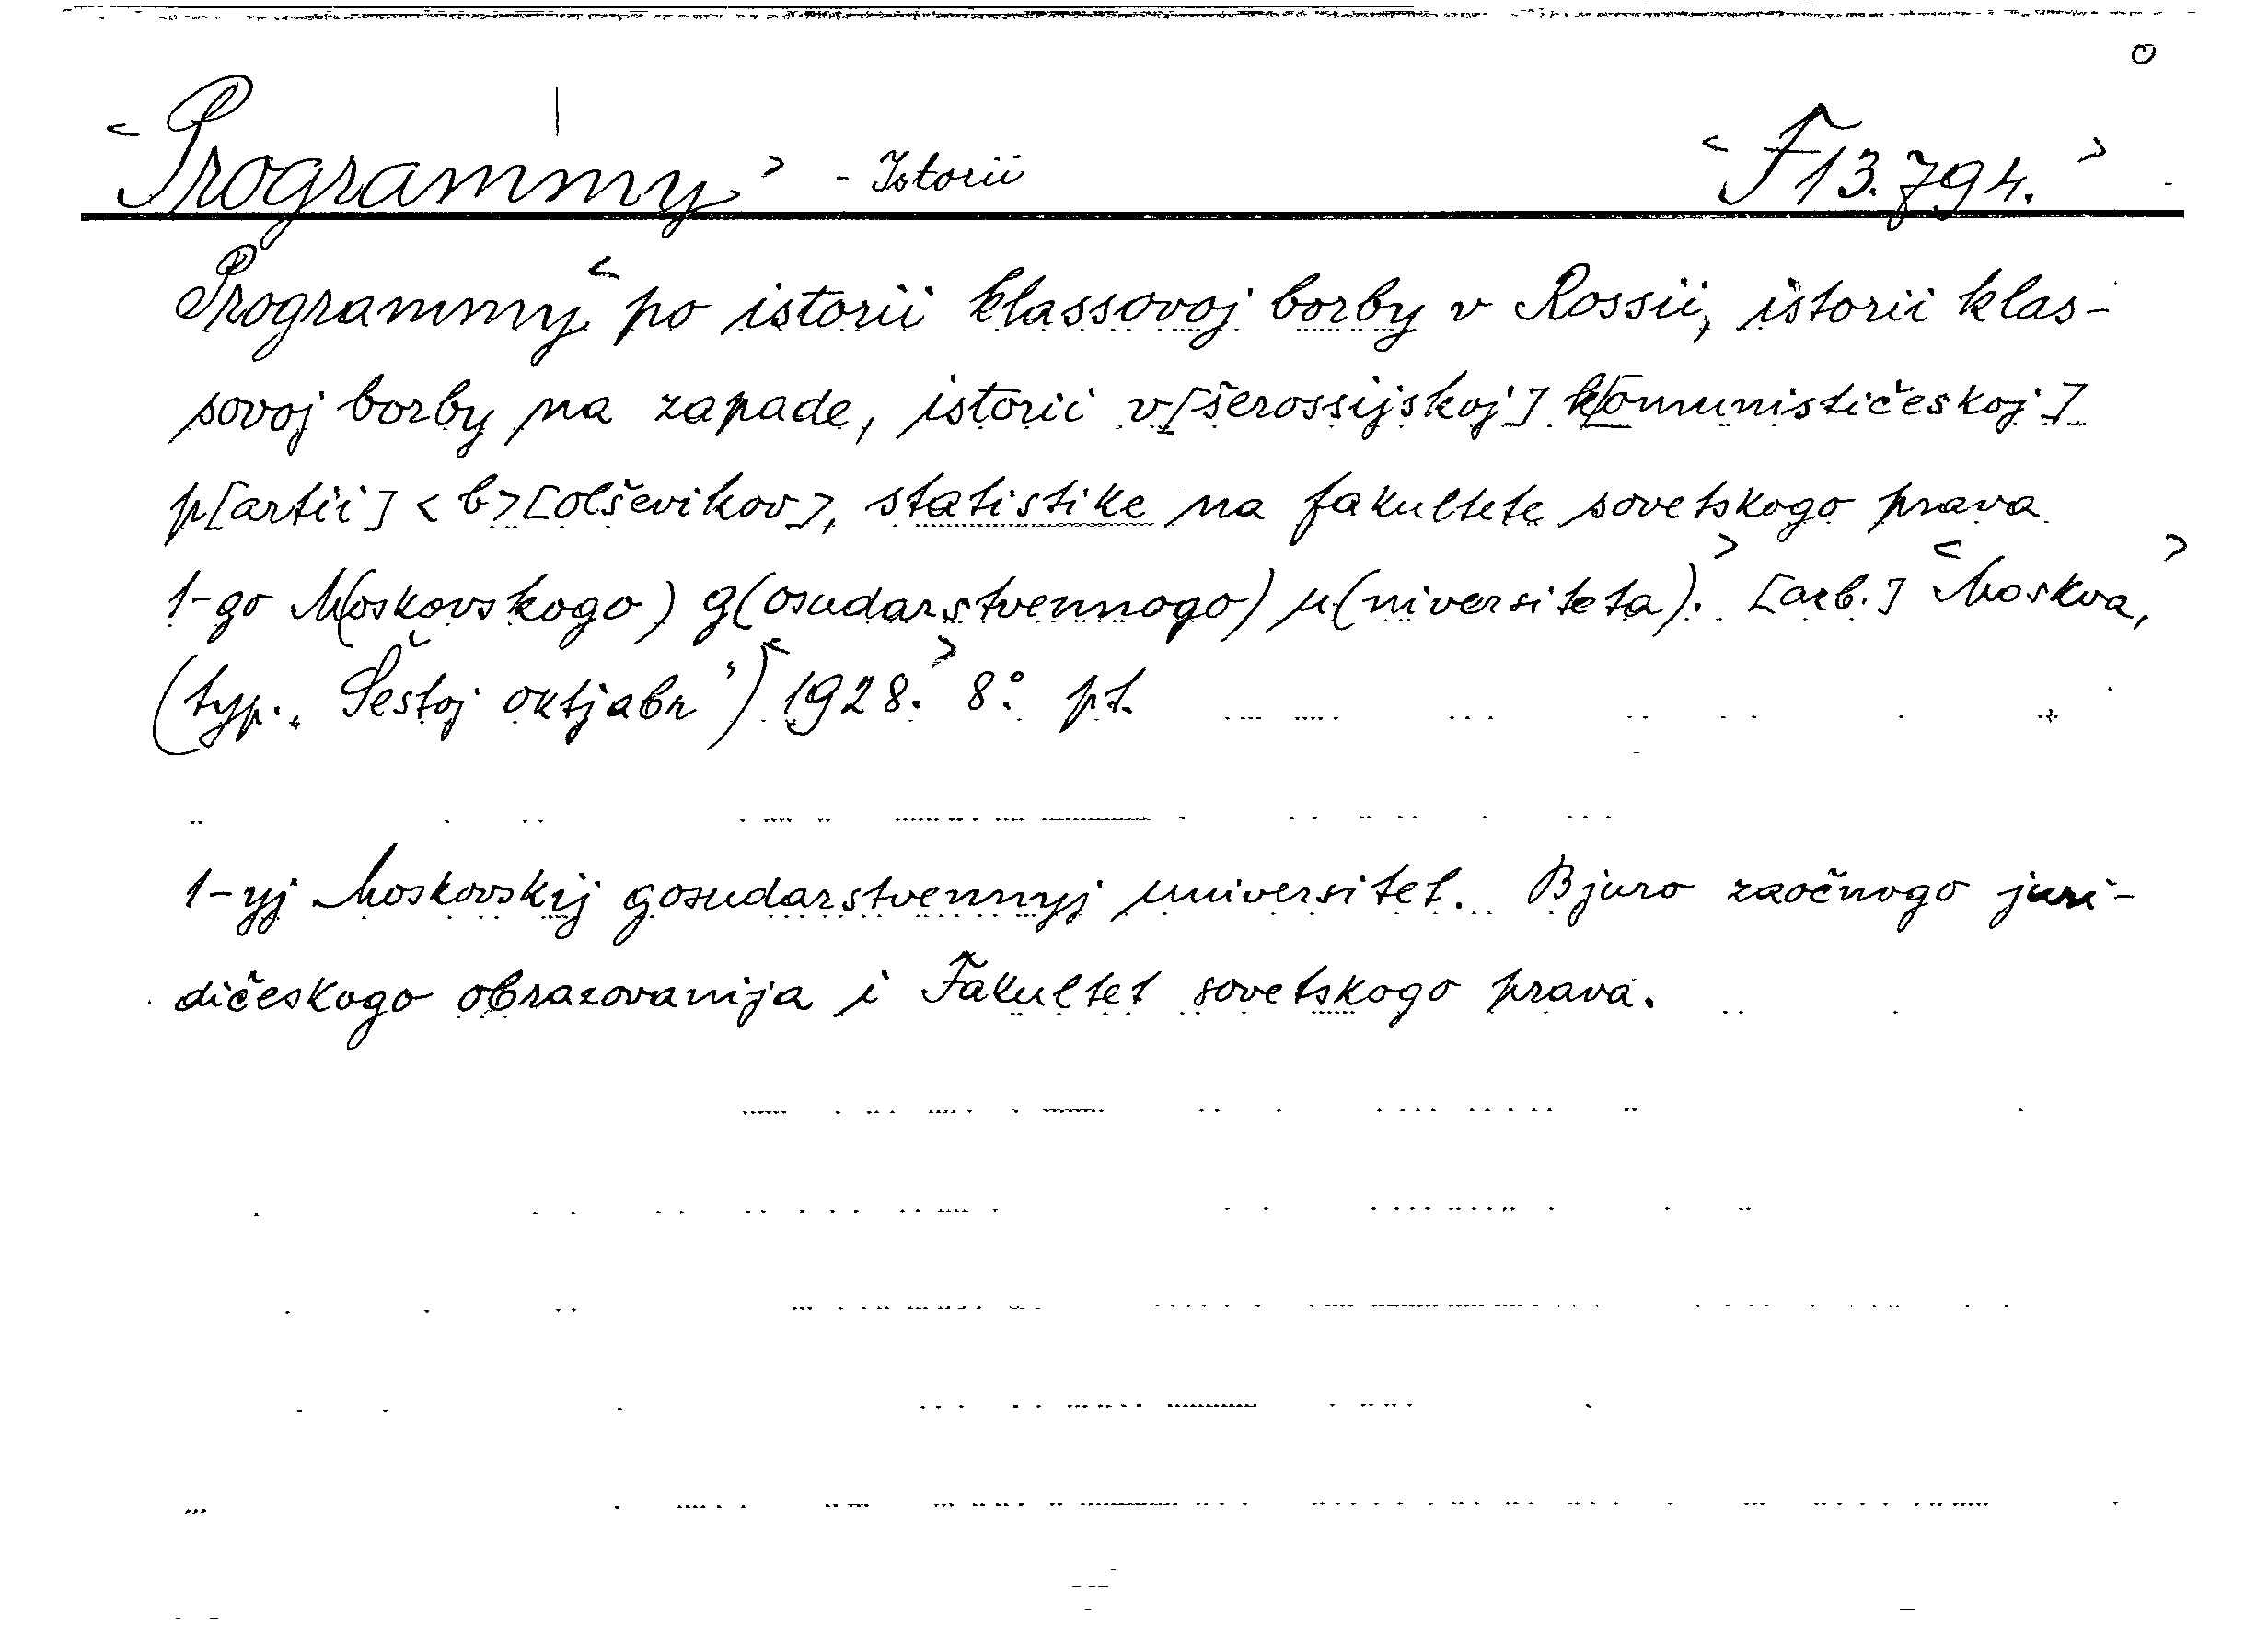 <Programmy> - Istorii <F 13.794.>
Programmy < po istorii klassovoj borby v Rossii, istorii klas-
sovoj borby na zapade, istorii v[šerossijskoj] k[omunističeskoj]
p[artii] <b>[olševikov], statistike na fakultete sovetskogo prava
1-go M(oskovskogo) g(osudarstvennogo) u(niversiteta).> [arb.] <Moskva,>
(typ. „Šestoj oktjabr’) <1928.> 8° pt.
1-yj Moskovskij gosudarstvennyj universitet. Bjuro zaočnogo juri-
dičeskogo obrazovanija i Fakultet sovetskogo prava.